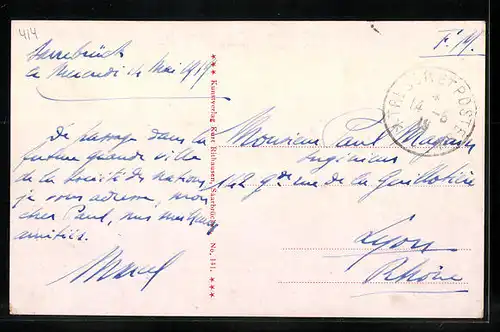 4/4
F. M.
Sarrebrück
Le Mercredi 14 Mai 1919
TRÉSOR ET POSTES
*
14 - 5
De passage dans la
future grande ville
de la Société des Nations
je vous adresse, mon
cher Paul, mes meilleures
amitiés.
Marcel
*** Kunstverlag Kurt Röthausen, Saarbrücken No. 141. ***
Monsieur Paul
Ingénieur
142 gde rue de la Guillotière
Lyon
Rhône